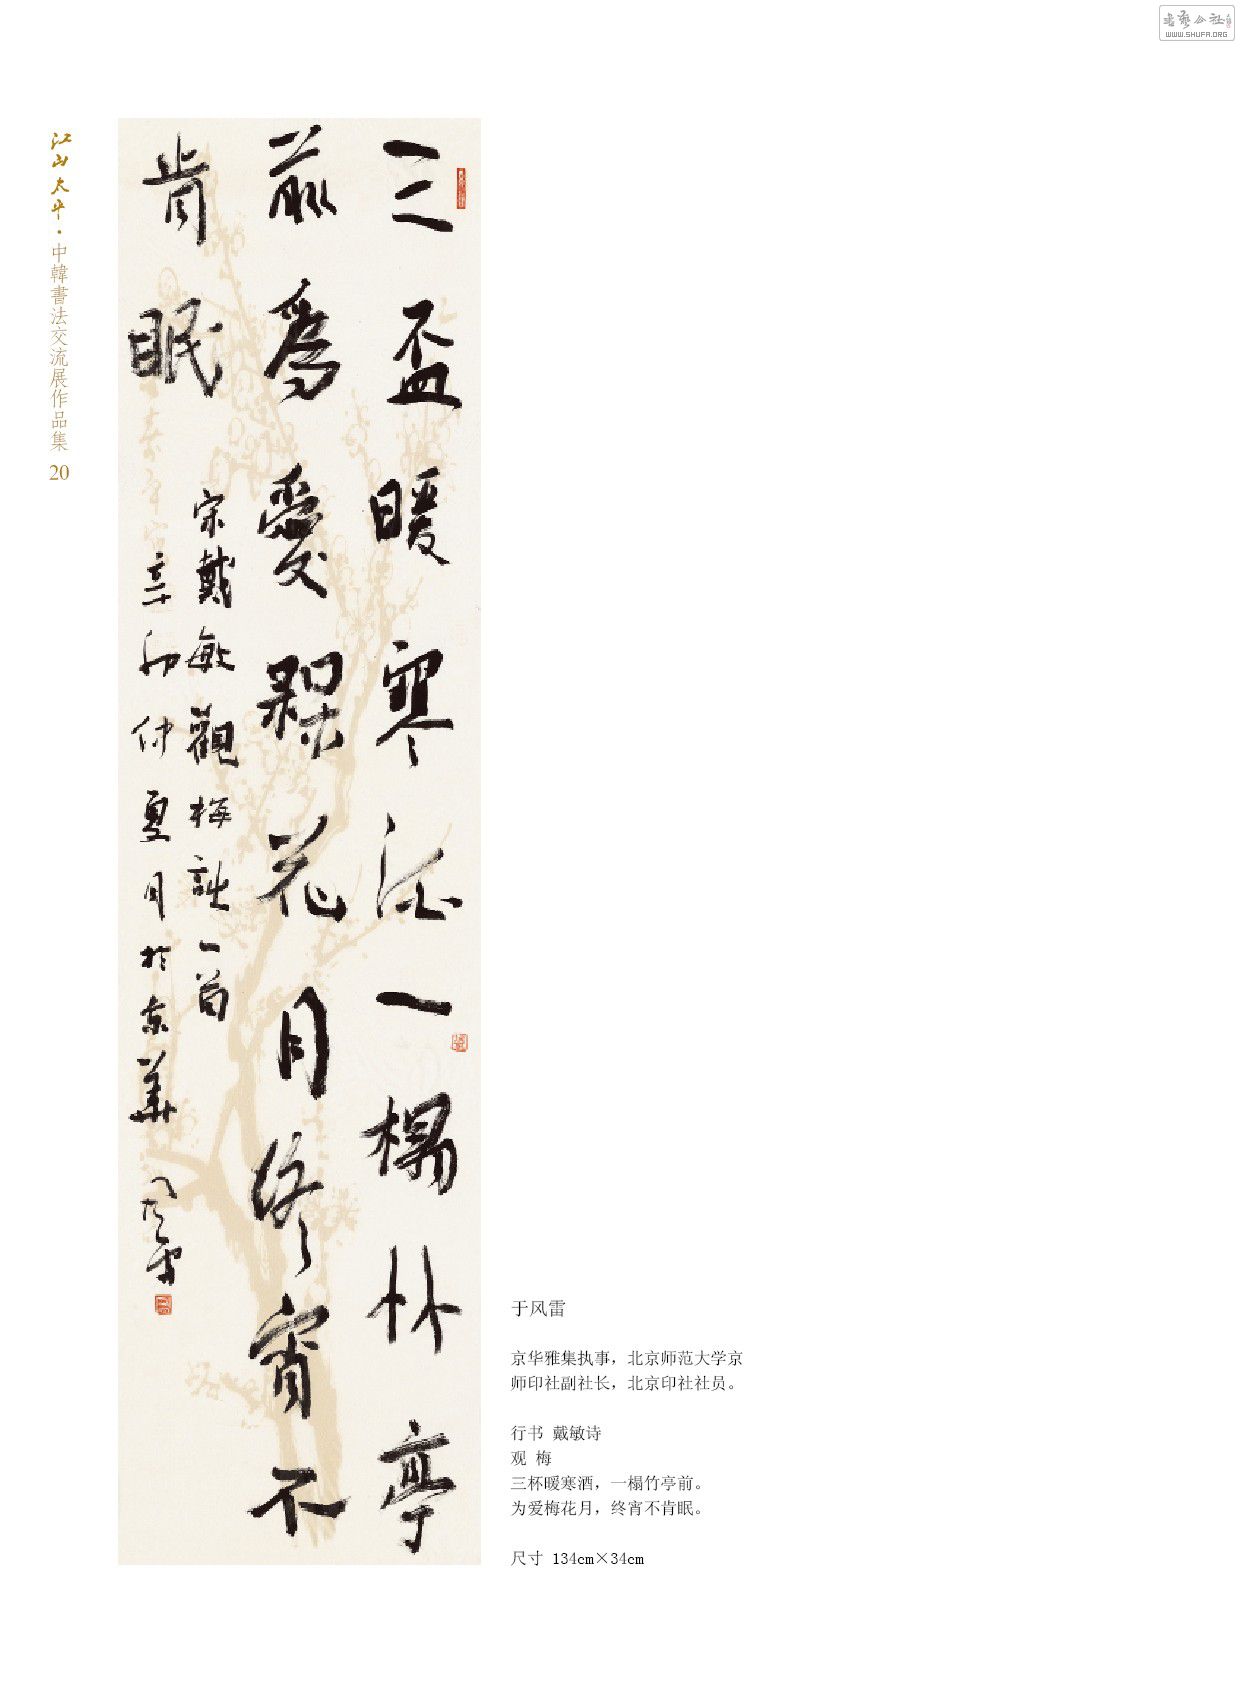 書藝公社
WWW.SHUFA.ORG
江山太平·中韓書法交流展作品集 20
三盃暖寒酒一榻竹亭
前為愛槑花月終宵不
肯眠
宋戴敏觀梅詩一首
辛卯仲夏月於京華 風雷
于风雷
京华雅集执事，北京师范大学京
师印社副社长，北京印社社员。
行书 戴敏诗
观 梅
三杯暖寒酒，一榻竹亭前。
为爱梅花月，终宵不肯眠。
尺寸 134cm×34cm